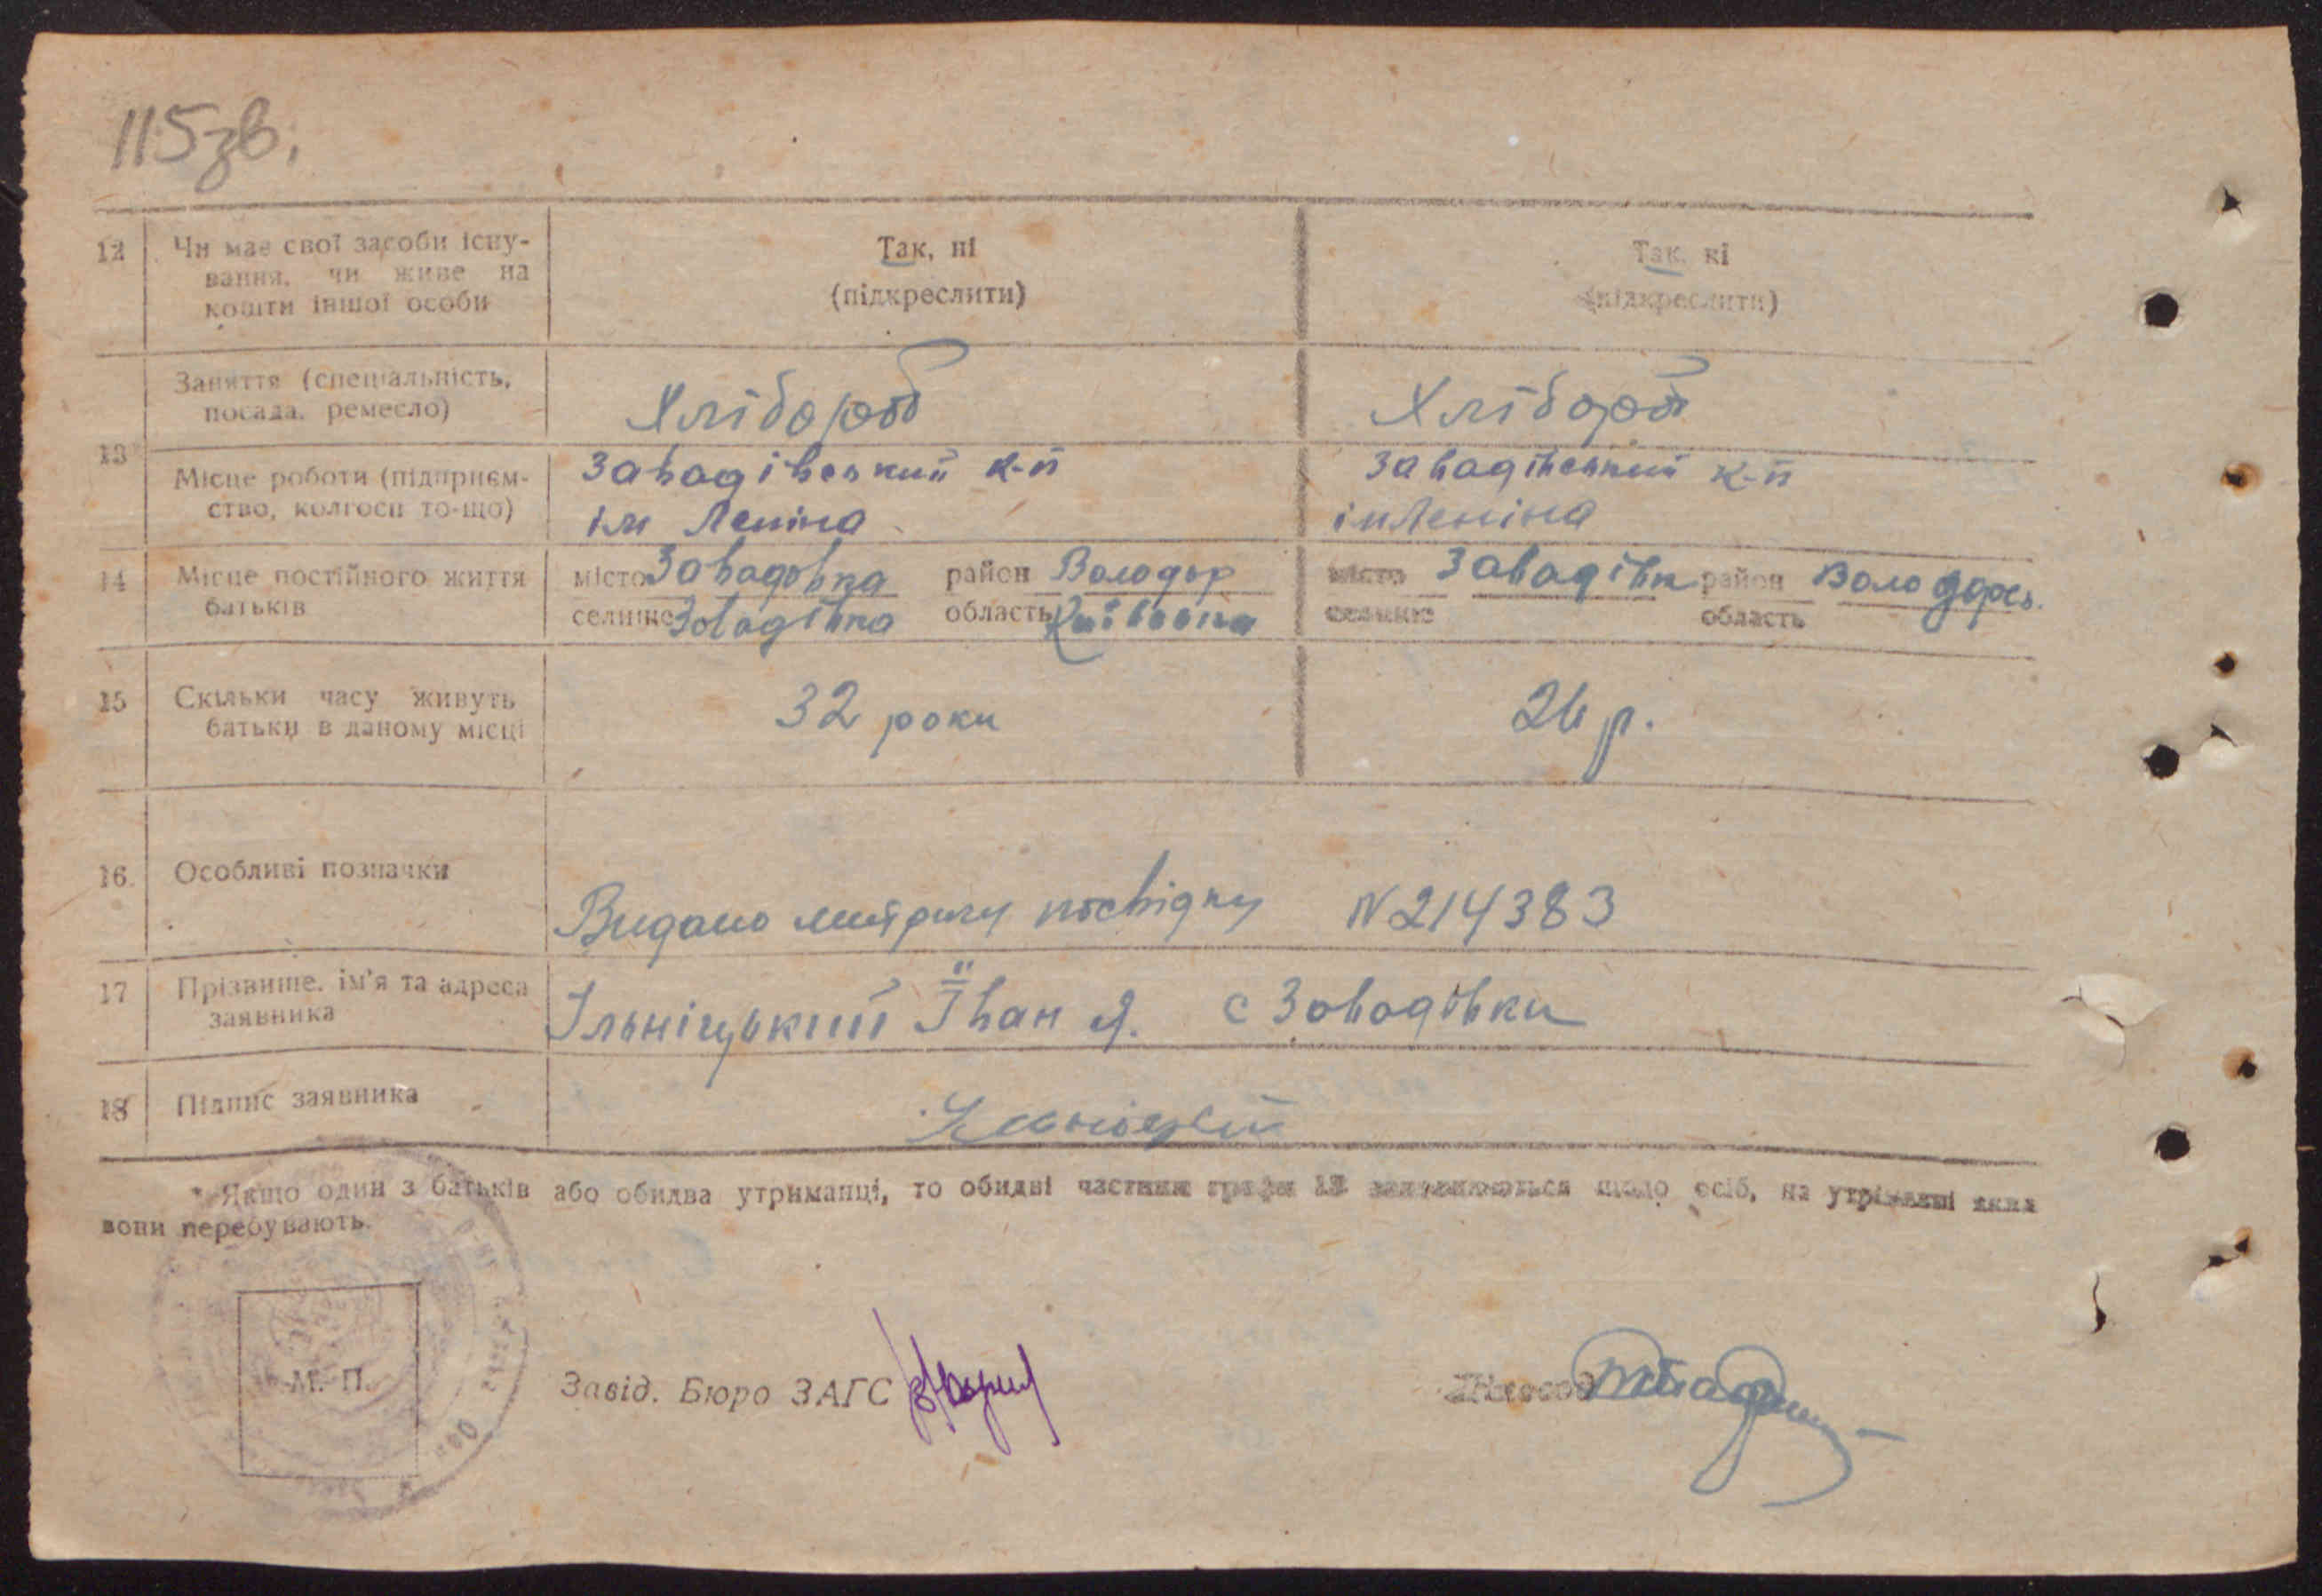 115зв.
12 Чи має свої засоби існу-
вання, чи живе на
кошти іншої особи
Так, ні
(підкреслити)
Так, ні
(підкреслити)
13
Заняття (спеціальність,
посада, ремесло)
Хлібороб
Хлібороб
Місце роботи (підприєм-
ство, колгосп то-що)
Завадівський к-п
ім Леніна
Завадівський к-п
ім Леніна
14 Місце постійного життя
батьків
місто Завадовка район Володар
селище Завадівка область Київська
місто Завадівк район Володарсь.
селище область
15 Скільки часу живуть
батьки в даному місці
32 роки
26 р.
16 Особливі позначки
Видано метричну посвідку N 214383
17 Прізвище, ім'я та адреса
заявника
Ільніцький Іван Я. с Завадівки
18 Підпис заявника
* Якщо один з батьків або обидва утриманці, то обидві частини графи 12 заповнюються щодо осіб, на утриманні яких
вони перебувають.
М. П.
Завід. Бюро ЗАГС